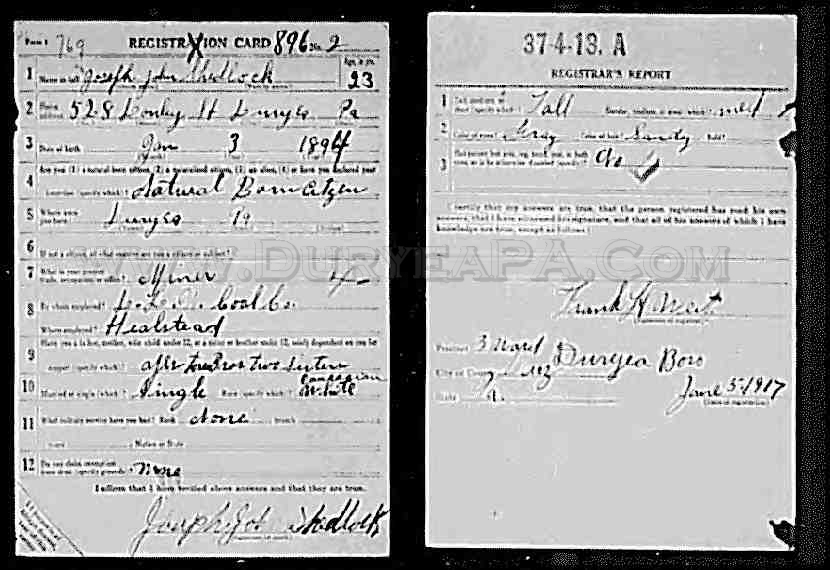 Form 1 769 REGISTRATION CARD 896 No. 2
1 Name in full Joseph John Shedlock Age, in yrs. 23
2 Home address 528 Donley St Duryea Pa
3 Date of birth Jan 3 1894
Are you (1) a natural born citizen, (2) a naturalized citizen, (3) an alien, (4) or have you declared your
4 intention (specify which)? Natural Born Citizen
5 Where were you born? Duryea Pa
6 If not a citizen, of what country are you a citizen or subject?
7 What is your present trade, occupation, or office? Miner 4
8 By whom employed? Coal Co
Where employed? Healstead
Have you a father, mother, wife, child under 12, or a sister or brother under 12, solely dependent on you for
9 support (specify which)? two Bros two sisters
10 Married or single (which)? Single Race (specify which)? Caucasian White
11 What military service have you had? Rank None branch
years Nation or State
12 Do you claim exemption from draft (specify grounds)? None
I affirm that I have verified above answers and that they are true.
Joseph Joh Shedlock
37-4-13. A
REGISTRAR'S REPORT
1 Tall, medium, or short (specify which)? Tall Slender, medium, or stout (which)? med
2 Color of eyes? Gray Color of hair? Sandy Bald?
3 Has person lost arm, leg, hand, foot, or both eyes, or is he otherwise disabled (specify)? No
I certify that my answers are true, that the person registered has read his own
answers, that I have witnessed his signature, and that all of his answers of which I have
knowledge are true, except as follows:
WWW.DURYEAPA.COM
Frank H West
(Signature of registrar)
Precinct 3 Ward
City or County Luz Duryea Boro
State Pa June 5-1917
(Date of registration)